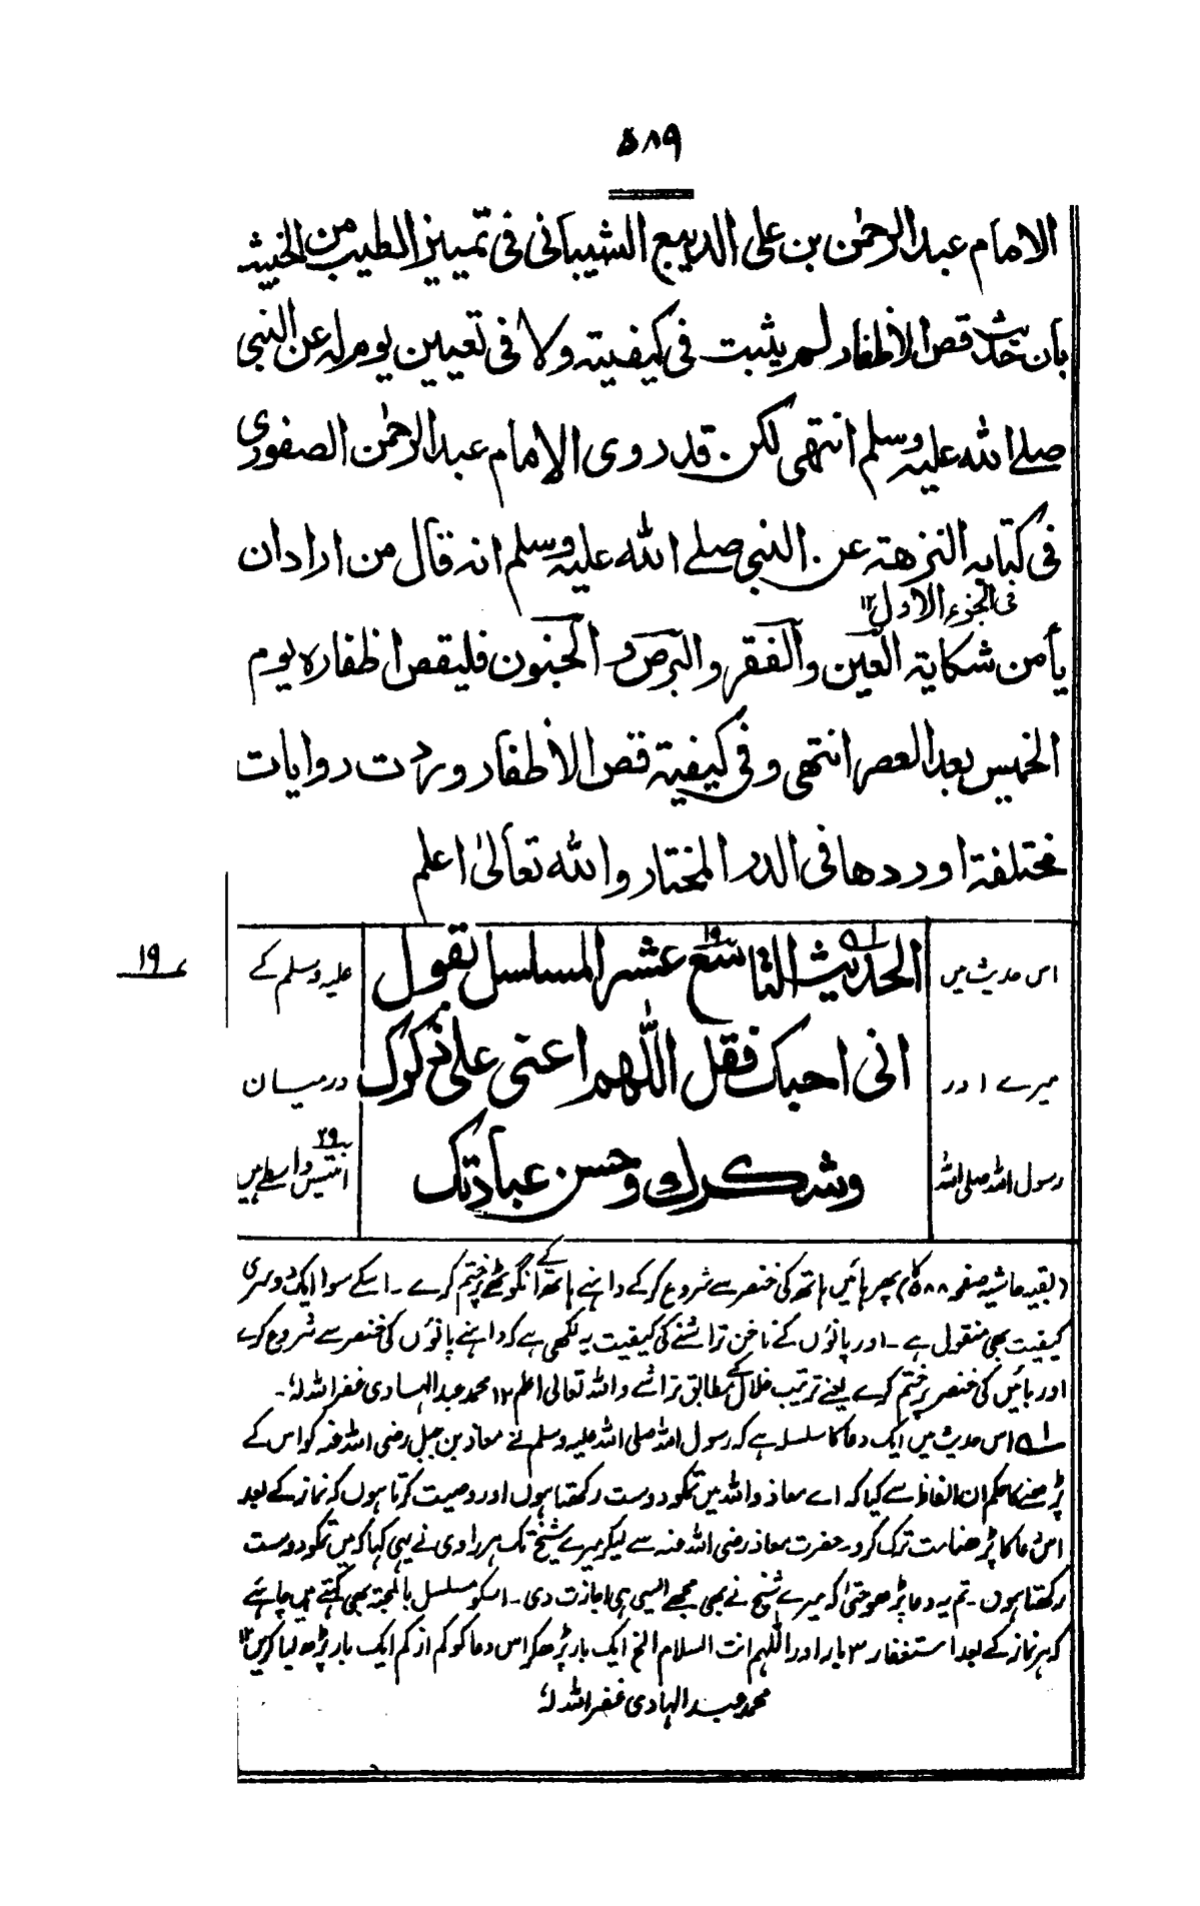 ۵۸۹
الامام عبدالرحمٰن بن علی الدیبع الشیبانی فی تمییز الطیب من الخبیث
بان حدیث قص الاظفار لم یثبت فی کیفیتہ ولا فی تعیین یوم لہ عن النبی
صلے اللہ علیہ وسلم انتھی لکن قد روی الامام عبدالرحمٰن الصفوری
فی کتابہ النزھۃ عن النبی صلے اللہ علیہ وسلم انہ قال من اراد ان
فی الجزء الاول ۱۲
یأمن شکایۃ العین والفقر والبرص والجنون فلیقص اظفارہ یوم
الخمیس بعد العصر انتھی و فی کیفیۃ قص الاظفار وردت روایات
مختلفۃ اوردھا فی الدر المختار واللہ تعالیٰ اعلم
الحدیث التاسع عشر المسلسل بقول
۱۹
انی احبک فقل اللّٰھم اعنی علی ذکرک
وشکرک وحسن عبادتک
اس حدیث میں
میرے اور
رسول اللہ صلی اللہ
علیہ وسلم کے
درمیان
۲۹
انتیس واسطے ہیں
۱۹
(بقیہ حاشیہ صفحہ ۵۸۸ کا) پھر بائیں ہاتھ کی خنصر سے شروع کرکے داہنے ہاتھ کے انگوٹھے پر ختم کرے۔ اسکے سوا ایک دوسری
کیفیت بھی منقول ہے۔ اور پانوں کے ناخن تراشنے کی کیفیت یہ لکھی ہے کہ داہنے پانوں کی خنصر سے شروع کرے
اور بائیں کی خنصر پر ختم کرے یعنے ترتیب خلال کے مطابق تراشے واللہ تعالی اعلم ۱۲ محمد عبدالہادی غفراللہ لہٗ۔
لہ اس حدیث میں ایک دعا کا سلسلہ ہے کہ رسول اللہ صلی اللہ علیہ وسلم نے معاذ بن جبل رضی اللہ عنہ کو اس کے
پڑھنے کا حکم ان الفاظ سے کیا کہ اے معاذ واللہ میں تمکو دوست رکھتا ہوں اور وصیت کرتا ہوں کہ نماز کے بعد
اس دعا کا پڑھنا مت ترک کرو۔ حضرت معاذ رضی اللہ عنہ سے لیکر میرے شیخ تک ہر راوی نے یہی کہا کہ میں تمکو دوست
رکھتا ہوں۔ تم یہ دعا پڑھو حتیٰ کہ میرے شیخ نے بھی مجھے ایسی ہی اجازت دی۔ اسکو مسلسل بالمحبۃ بھی کہتے ہیں چاہئے
کہ ہر نماز کے بعد استغفار ۳ بار اور اللّٰہم انت السلام الخ ایک بار پڑھکر اس دعا کو کم از کم ایک بار پڑھ لیا کریں ۱۲
محمد عبدالہادی غفراللہ لہٗ